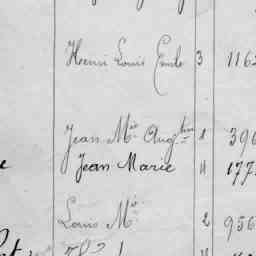 Henri Louis Emile 3 1162
Jean Mie Augtin 1 396
Jean Marie 11 177
Louis Mie 2 956